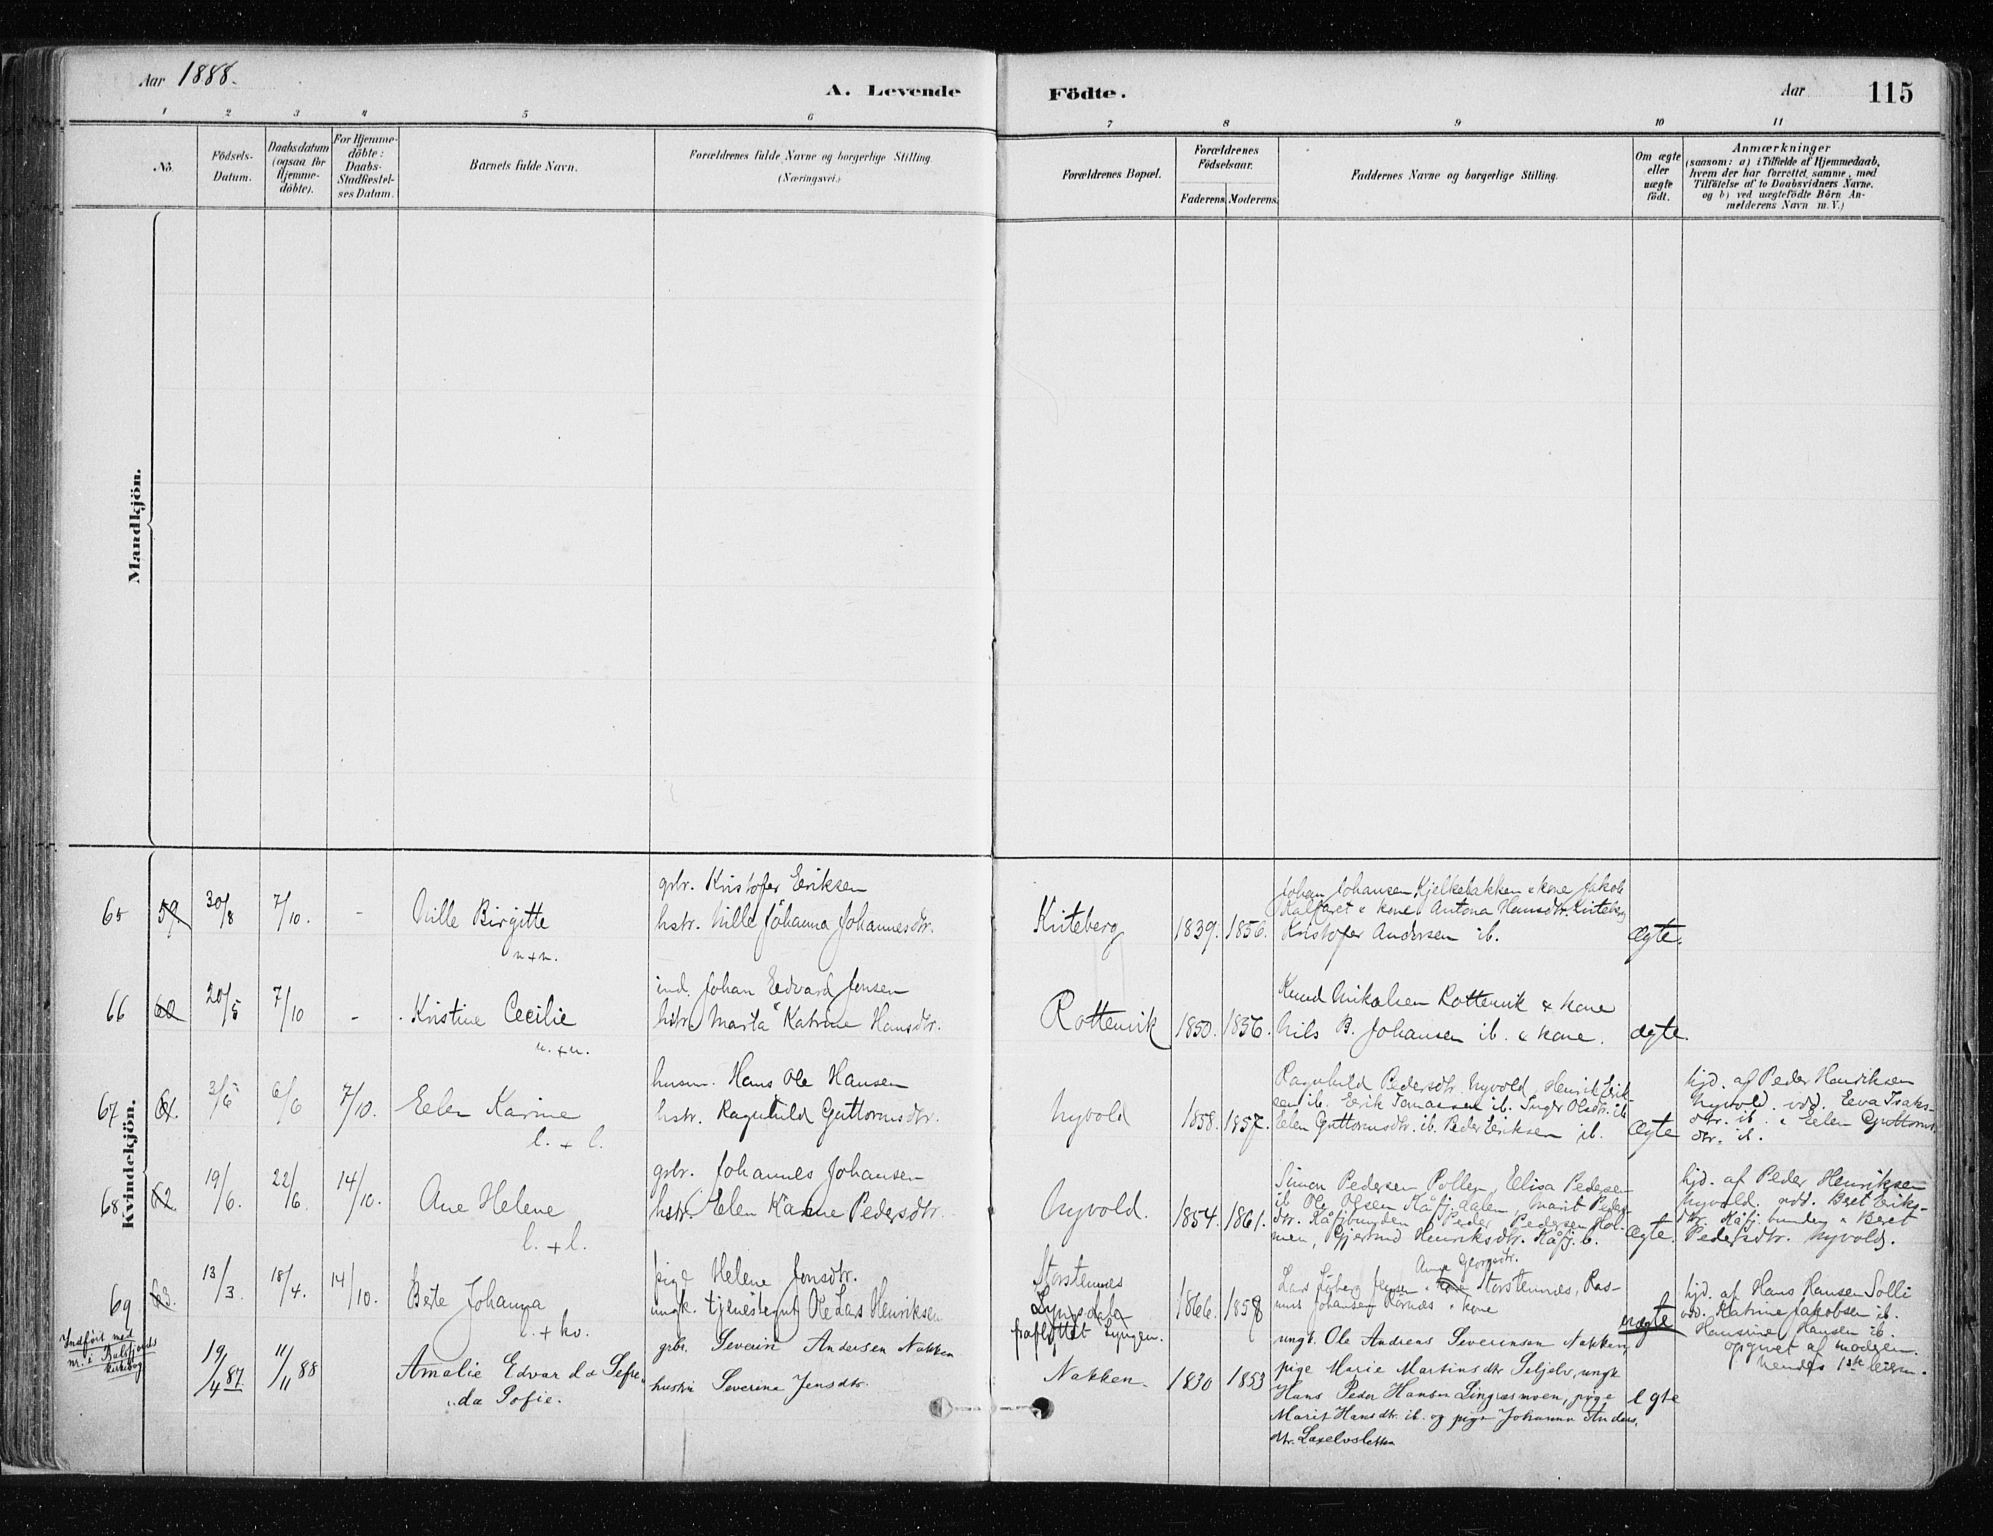 Aar 1888.
A. Levende Födte.
Aar 115
1 2 3 4 5 6 7 8 9 10 11
No. Födsels-Datum. Daabsdatum (ogsaa for Hjemme-döbte). For Hjemme-döbte: Daabs-Stadfæstel-ses Datum. Barnets fulde Navn. Forældrenes fulde Navne og borgerlige Stilling. (Næringsvei.) Forældrenes Bopæl. Forældrenes Födselsaar. Faderens. Moderens. Faddernes Navne og borgerlige Stilling. Om ægte eller uægte födt. Anmærkninger (saasom: a) i Tilfælde af Hjemmedaab, hvem der har forrettet samme, med Tilföielse af to Daabsvidners Navne, og b) ved uægtefödte Börn Anmelderens Navn m. V.)
Mandkjön.
Kvindekjön.
65 59. 30/8 7/10. - Nille Birgitte
n+n.
grbr. Kristofer Eriksen
hstr. Nille Johanna Johannesdtr.
Kviteberg 1839. 1856.
Johan Johansen Kjelkebakken & kone Jakob
& kone Antona Hansdtr. Kviteberg
Kristofer Andersen ib.
Ægte.
66 60 20/5 7/10 - Kristine Cecilie
n.+n.
ind. Johan Edvard Jensen
hstr. Marta Katrine Hansdtr.
Rottenvik 1850. 1856.
Knud Nikolisen Rottenvik & kone
Nils B. Johansen ib. & kone.
ægte.
67 61. 6/6 7/10. Eelen Karine
l. + l.
husm. Hans Ole Hansen
hstr. Ragnhild Guttormsdtr.
Nyvold 1858. 1857.
Ragnhild Pedersdtr Nyvold, Henrik Erik-
sen ib. Erik Tomassen ib. Inger Olsdtr. ib
Eelen Guttormsdtr. ib. Peder Eriksen ib.
Ægte
hjd. af Peder Henriksen
Nyvold. vdd. Eeva Isaks-
dtr. ib. & Eelen Guttorms-
dtr. ib.
68 62. 19/6. 22/6 14/10. Ane Helene
l. + l.
grbr. Johannes Johansen
hstr. Eelen Karine Pedersdtr.
Nyvold. 1854. 1861.
Simon Pedersen Pollen, Elisa Pedersen
ib. Ole Olsen Kåfjdalen, Marit Peders-
dtr. Kåfjbunden, Peder Pedersen Hol-
men, Gjertrud Henriksdtr. Kåfj. b.
Ægte.
hjd. af Peder Henriksen
Nyvold. vdd. Beret Eriks-
dtr. Kåfj. bunden & Beret
Pedersdtr. Nyvold.
69 63. 13/3. 18/4. 14/10. Berte Johanna
l. + kv.
pige Helene Jonsdtr.
ungk. tjenestegut Ole Lars Henriksen
Storstennes
fraflyttet Lyngen. 1866. 1858
Anne Georgsdtr.
Storstennes, Ras-
mus Johansen & kone
uægte
hjd. af Hans Hansen Solli
vdd. Katrine Jakobsen ib.
Hansine Hansen ib.
opgivet af moderen.
hendes 1ste leierm.
Indført med
nr. i Balsfjords
kirkebog
19/4 87. 11/11 88 Amalie Edvarda Sefre-
da Sofie.
grbr. Severin Andersen Nakken
hustru Severine Jensdtr.
Nakken. 1830 1853
ungk. Ole Andreas Severinsen Nakken,
pige Marie Martinsdtr Seljelv, ungk
Hans Peder Hansen Lingrasmoen, pige
Marit Hansdtr. ib. og pige Johanna Anders.
dtr. Laxelvsletten
egte